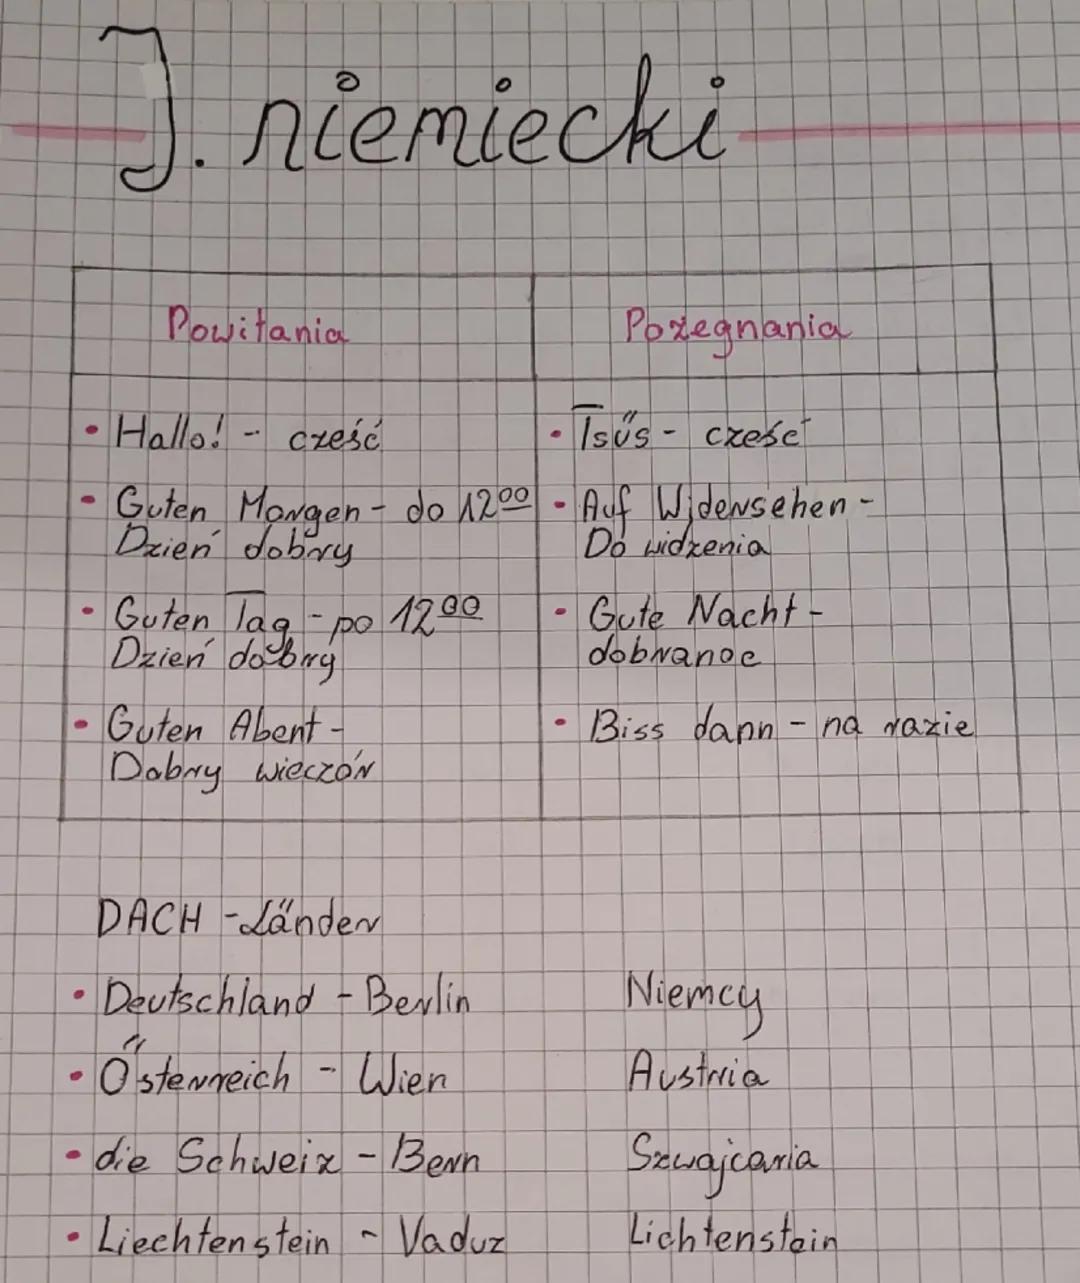 J. niemiecki
Powitania
Pożegnania
• Hallo! - cześć
• Guten Morgen - do 12⁰⁰
Dzień dobry
• Guten Tag - po 12⁰⁰
Dzień dobry
• Guten Abent -
Dobry wieczór
• Tsűs - cześć
• Auf Widersehen -
Do widzenia
• Gute Nacht -
dobranoc
• Biss dann - na razie
DACH - Länder
• Deutschland - Berlin Niemcy
• Österreich - Wien Austria
• die Schweiz - Bern Szwajcaria
• Liechtenstein - Vaduz Lichtenstein